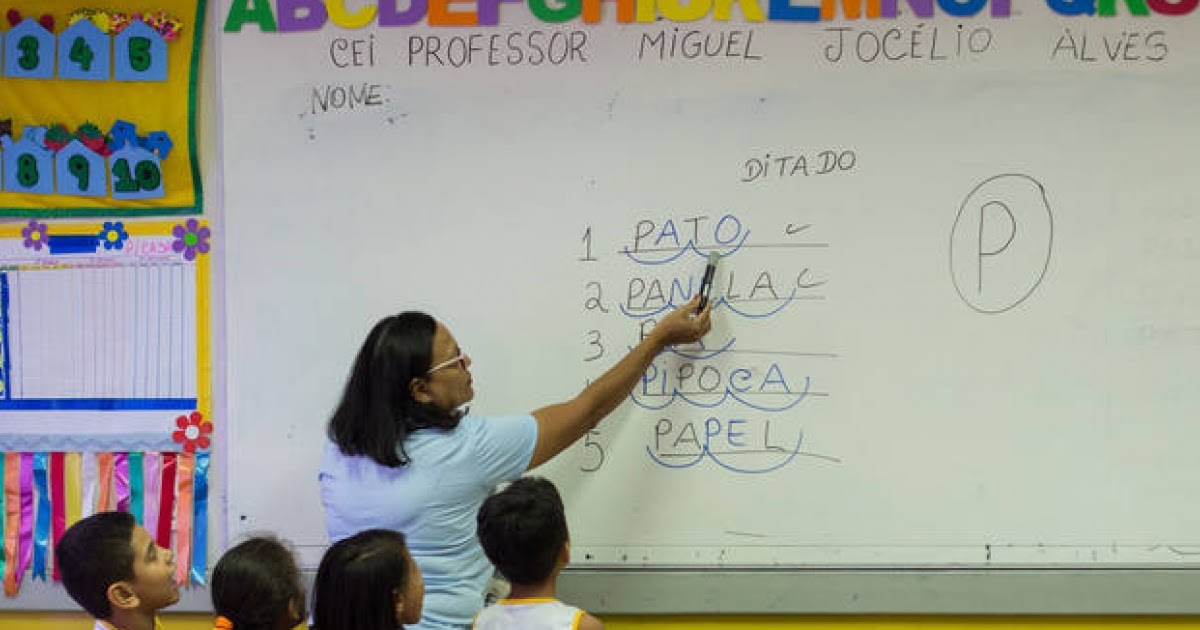 ABCDEFGHIJKLMNOPQRS
CEI PROFESSOR MIGUEL JOCÉLIO ALVES
NOME:
DITADO
1 PATO
2 PANELA
3
PIPOCA
5 PAPEL
P
3 4 5
8 9 10
P/CASA